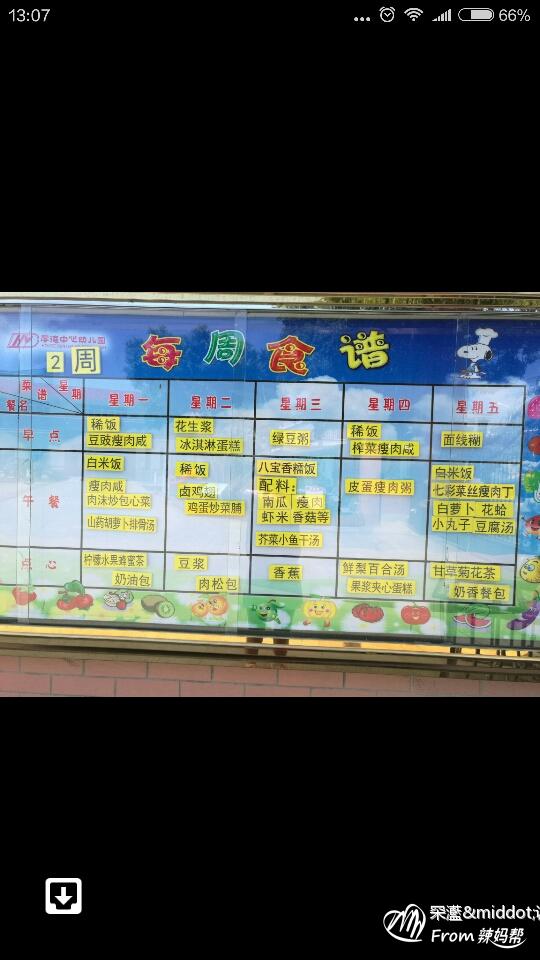 13:07
66%
中心幼儿园
2周 每周食谱
星期
菜谱
餐名
星期一 星期二 星期三 星期四 星期五
早点
稀饭
豆豉瘦肉咸
花生浆
冰淇淋蛋糕
绿豆粥
稀饭
榨菜瘦肉咸
面线糊
午餐
白米饭
瘦肉咸
肉沫炒包心菜
山药胡萝卜排骨汤
稀饭
卤鸡翅
鸡蛋炒菜脯
八宝香糯饭
配料：
南瓜 瘦肉
虾米 香菇等
芥菜小鱼干汤
皮蛋瘦肉粥
白米饭
七彩菜丝瘦肉丁
白萝卜 花蛤
小丸子 豆腐汤
点心
柠檬水果蜂蜜茶
奶油包
豆浆
肉松包
香蕉
鲜梨百合汤
果浆夹心蛋糕
甘草菊花茶
奶香餐包
From 辣妈帮